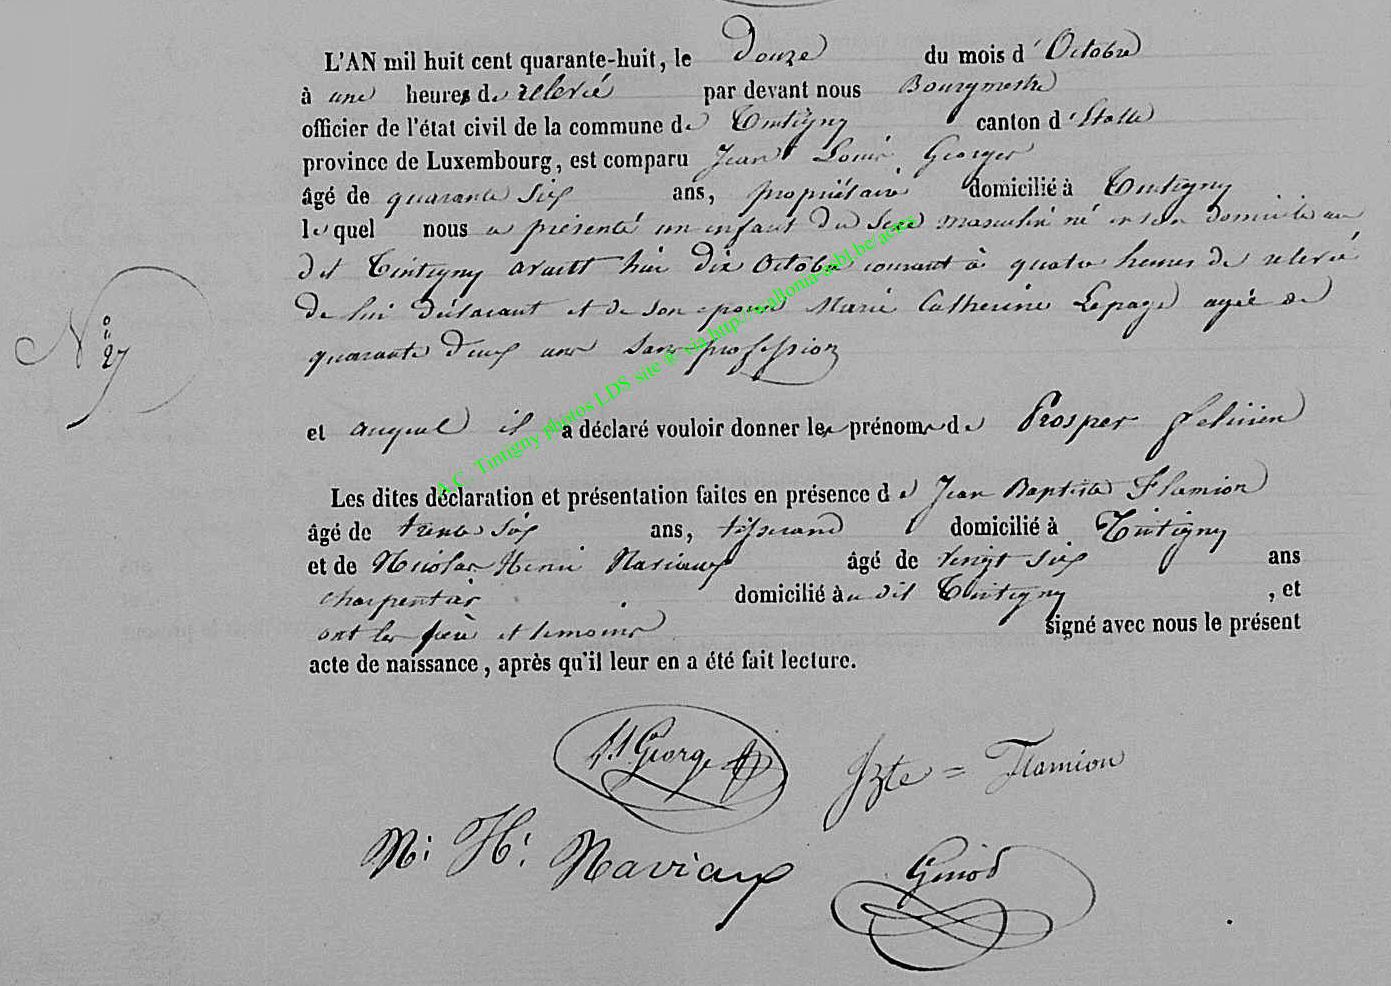 L'AN mil huit cent quarante-huit, le Douze du mois d'Octobre
à une heure de relevé par devant nous Bourgmestre
officier de l'état civil de la commune de Tintigny canton d'Etalle
province de Luxembourg, est comparu Jean Louis Georges
âgé de quarante six ans, propriétaire domicilié à Tintigny
lequel nous a présenté un enfant du sexe masculin né en son domicile au
dit Tintigny avant hier dix Octobre courant à quatre heures de relevé
de lui déclarant et de son épouse Marie Catherine Lepage agée de
quarante deux ans sans profession
N° 27
et auquel il a déclaré vouloir donner les prénoms de Prosper Félicien
Les dites déclaration et présentation faites en présence de Jean Baptiste Flamion
âgé de trente six ans, tisserand domicilié à Tintigny
et de Nicolas Henri Naviaux âgé de vingt six ans
charpentier domicilié au dit Tintigny, et
ont les père et témoins signé avec nous le présent
acte de naissance, après qu'il leur en a été fait lecture.
George Jbte = Flamion
N: H: Naviaux
A.C. Tintigny photos LDS site © via http://wallonia-asbl.be/actes